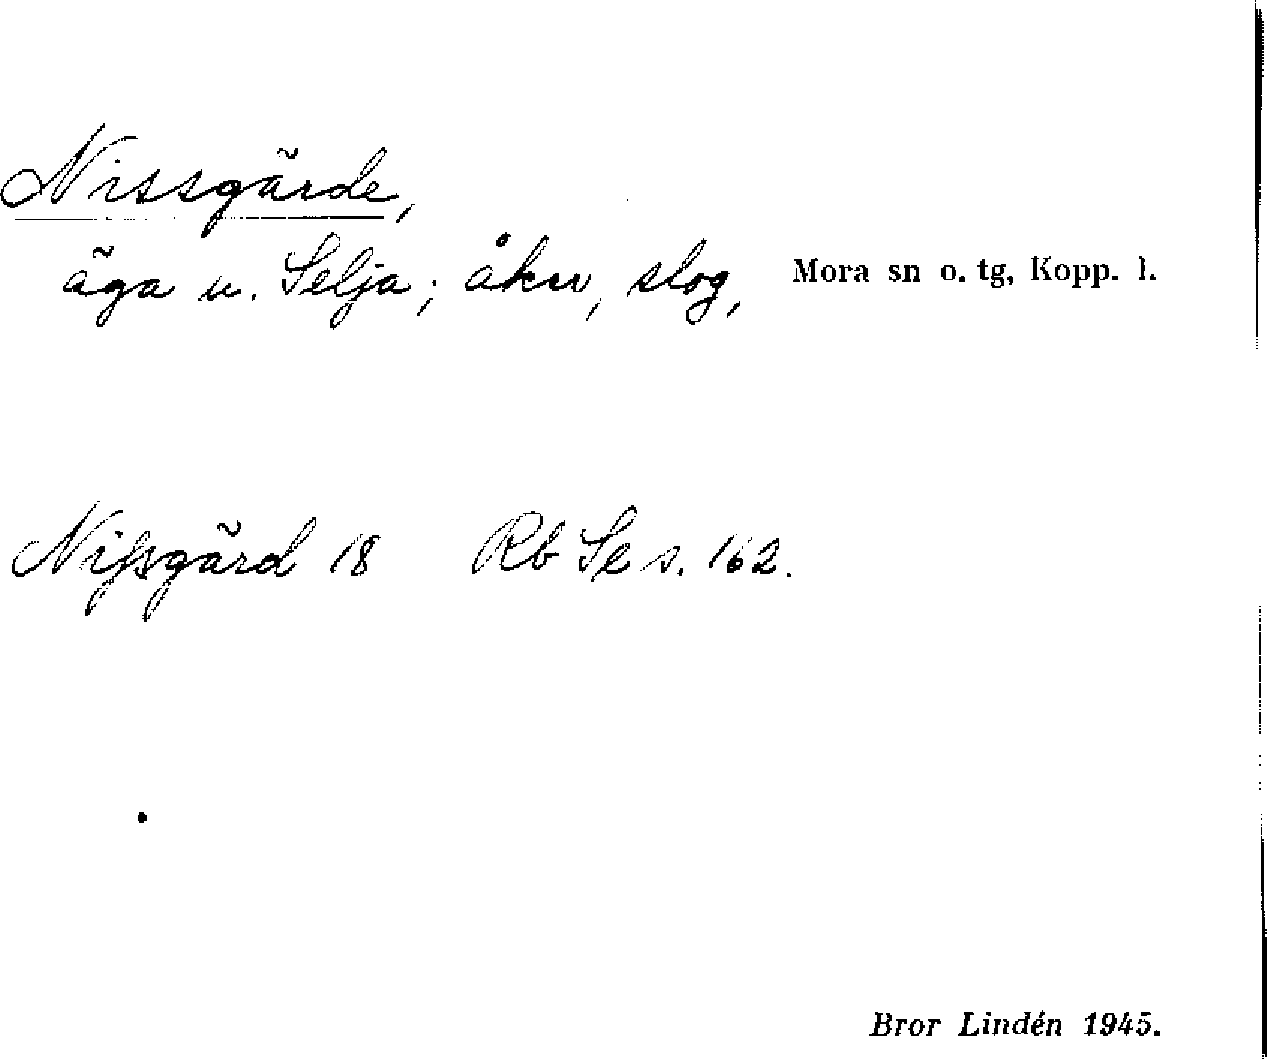 Nissgärde,
äga u. Selja; åker, slog, Mora sn o. tg, Kopp. l.
Nissgärd 18 Rb Se s. 162.
Bror Lindén 1945.